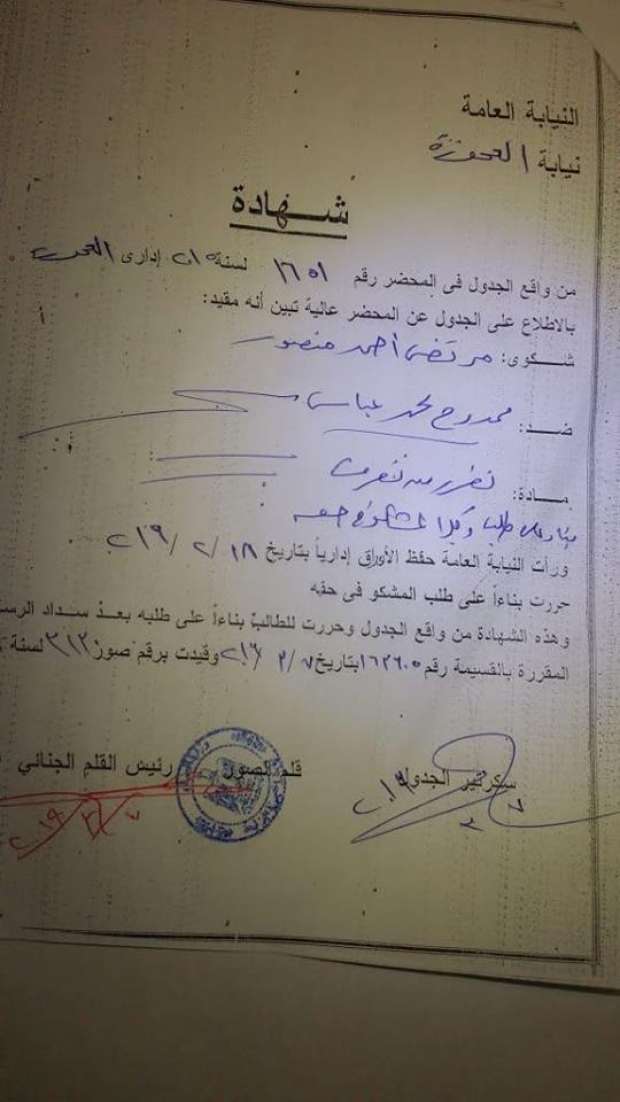 النيابة العامة
نيابة العجوزة
شهادة
من واقع الجدول فى المحضر رقم ١٦٥١ لسنة إدارى
بالاطلاع على الجدول عن المحضر عالية تبين أنه مقيد:
شكوى: مرتضى أحمد منصور
ضد: ممدوح محمد عباس
مادة: تضرر من
بناء على طلب وكيل المشكو فى حقه
ورأت النيابة العامة حفظ الأوراق إدارياً بتاريخ
حررت بناءاً على طلب المشكو فى حقه
وهذه الشهادة من واقع الجدول وحررت للطالب بناءاً على طلبه بعد سداد الرس
المقررة بالقسيمة رقم بتاريخ وقيدت برقم صور ٣١٢ لسنة
سكرتير الجدول قلم الصور رئيس القلم الجنائي